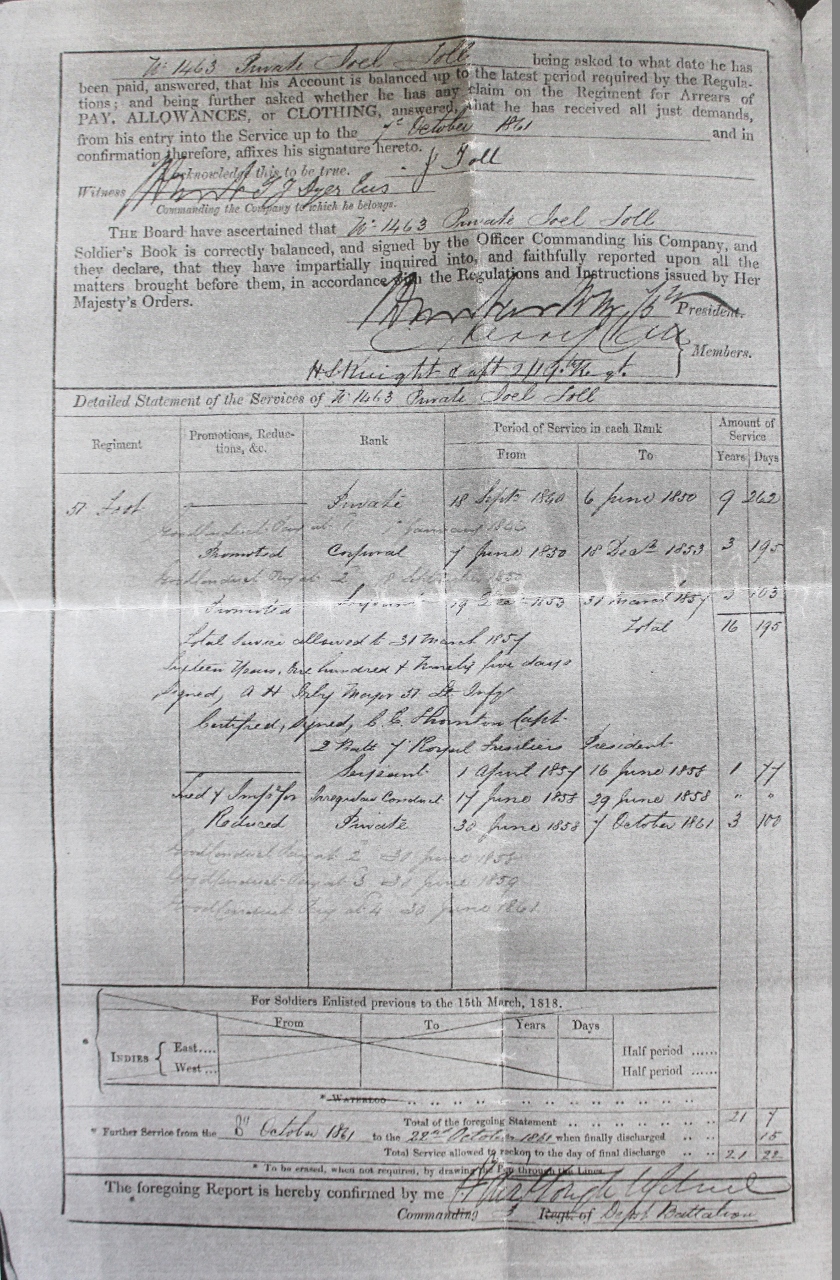 No 1463 Private Joel Toll being asked to what date he has
been paid, answered, that his Account is balanced up to the latest period required by the Regula-
tions; and being further asked whether he has any claim on the Regiment for Arrears of
PAY, ALLOWANCES, or CLOTHING, answered, that he has received all just demands,
from his entry into the Service up to the 7th October 1861 and in
confirmation therefore, affixes his signature hereto.
Acknowledge this to be true. J Toll
Witness Dyer Ens
Commanding the Company to which he belongs.
THE Board have ascertained that No 1463 Private Joel Toll
Soldier's Book is correctly balanced, and signed by the Officer Commanding his Company, and
they declare, that they have impartially inquired into, and faithfully reported upon all the
matters brought before them, in accordance with the Regulations and Instructions issued by Her
Majesty's Orders.
President.
Members.
H S Knight Capt 2/19th Regt.
Detailed Statement of the Services of No 1463 Private Joel Toll
Regiment Promotions, Reduc-tions, &c. Rank Period of Service in each Rank Amount of Service
From To Years Days
57 Foot Private 18 Septr 1840 6 June 1850 9 262
Good Conduct Pay at 1 January
Promoted Corporal 7 June 1850 18 Decr 1853 3 195
Good Conduct Pay at 2
Promoted Serjeant 19 Decr 1853 31 March 1857 3 103
Total 16 195
Total Service allowed to 31 March 1857
Sixteen Years, One hundred & Ninety five days
Signed, A H Irby Major 51 Lt Infy
Certified, Signed, C. C. Thornton Capt
2 Batt 7 Royal Fusiliers President
Serjeant 1 April 1857 16 June 1858 1 77
Tried & Impd for Irregular Conduct 17 June 1858 29 June 1858 " "
Reduced Private 30 June 1858 7 October 1861 3 100
Good Conduct Pay at 2 30 June 1858
Good Conduct Pay at 3 30 June 1859
Good Conduct Pay at 4 30 June 1861
For Soldiers Enlisted previous to the 15th March, 1818.
From To Years Days
* INDIES { East.... Half period ......
West ... Half period ......
* WATERLOO .. .. .. .. .. .. .. .. .. .. ..
Total of the foregoing Statement .. .. .. .. .. 21 7
* Further Service from the 8th October 1861 to the 22nd October 1861 when finally discharged .. .. 15
Total Service allowed to reckon to the day of final discharge .. .. 21 22
* To be erased, when not required, by drawing the Pen through the Lines.
The foregoing Report is hereby confirmed by me
Commanding Regt. of Depot Battalion